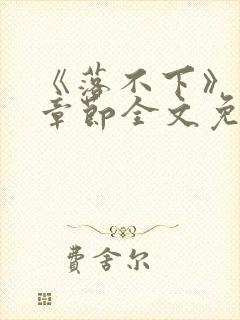 《落不下》
章节全文免
费舍尔